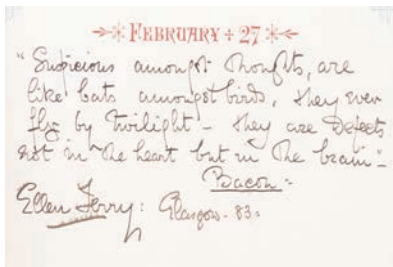 FEBRUARY + 27
"Suspicious amongst thoughts, are
like bats amongst birds, they ever
fly by twilight - They are Defects
not in the heart but in the brain" -
Bacon =
Ellen Terry: Glasgow - 83 =